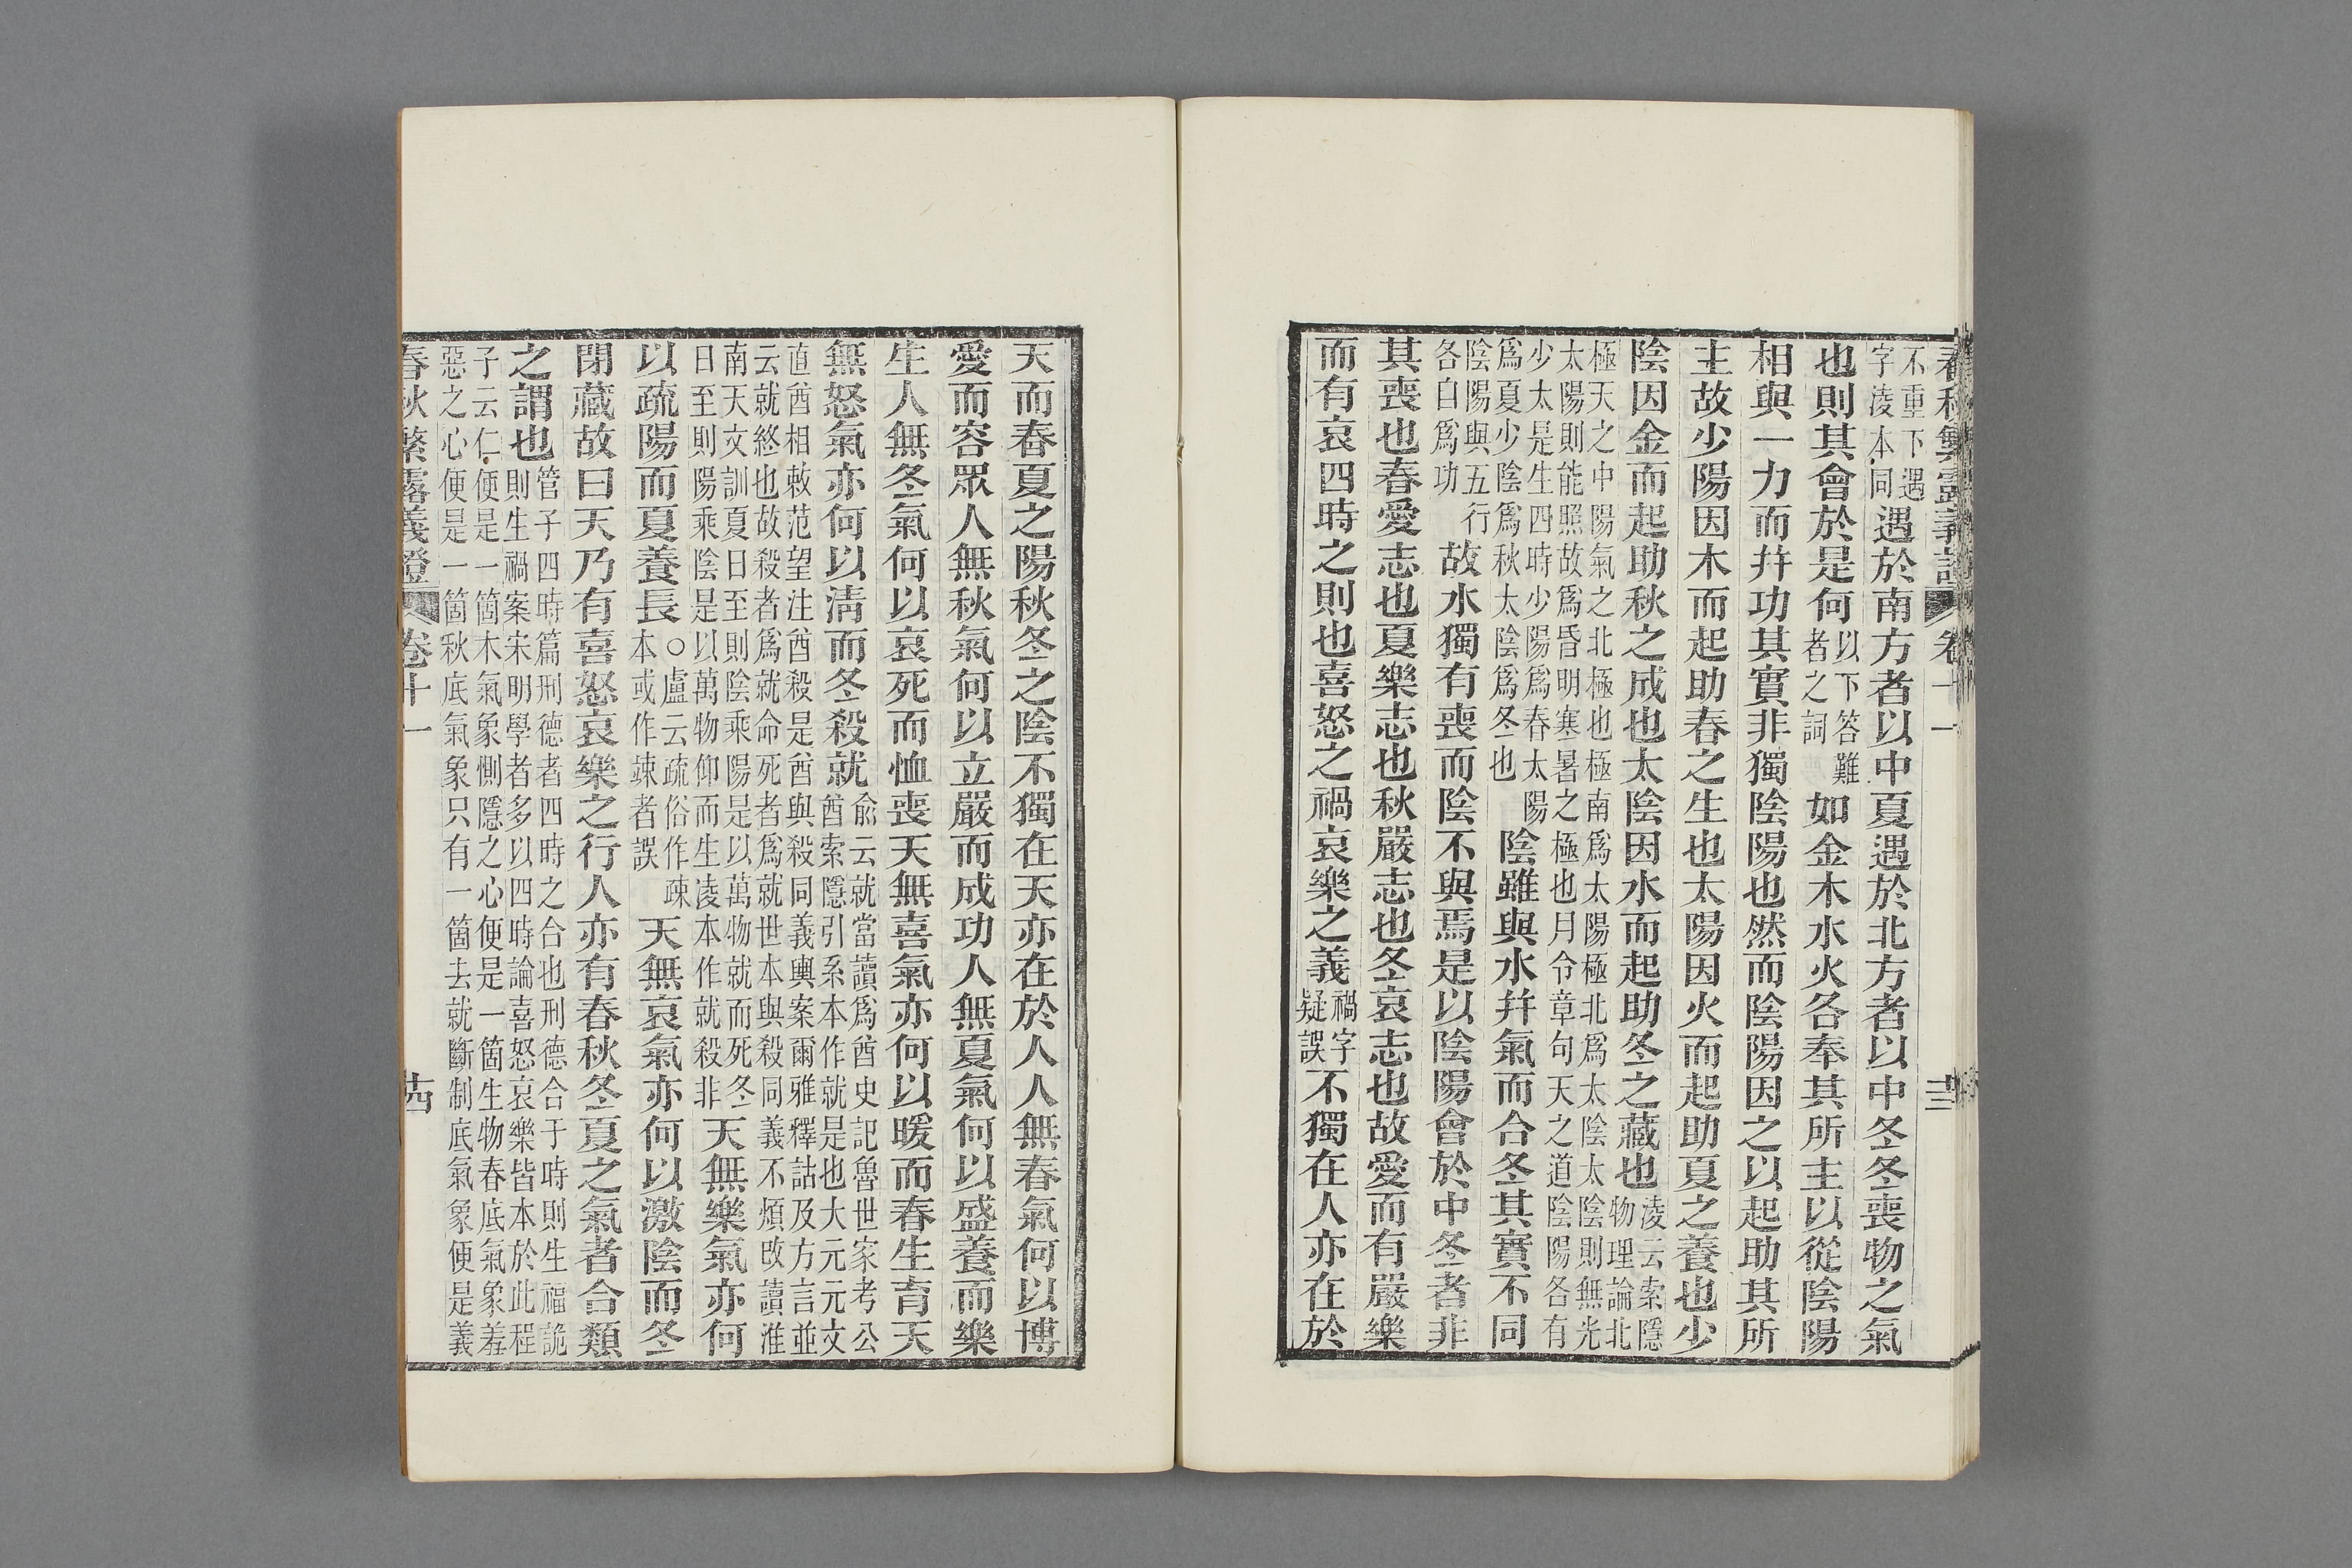 春秋繁露義證 卷十一 十三
不重下遇
字凌本同
遇於南方者以中夏遇於北方者以中冬冬喪物之氣
也則其會於是何
以下答難
者之詞
如金木水火各奉其所主以從陰陽
相與一力而幷功其實非獨陰陽也然而陰陽因之以起助其所
主故少陽因木而起助春之生也太陽因火而起助夏之養也少
陰因金而起助秋之成也太陰因水而起助冬之藏也
凌云索隱
物理論北
極天之中陽氣之北極也極南爲太陽極北爲太陰太陰則無光
太陽則能照故爲昏明寒暑之極也月令章句天之道陰陽各有
少太是生四時少陽爲春太陽
爲夏少陰爲秋太陰爲冬也
陰雖與水幷氣而合冬其實不同
陰陽與五行
各白爲功
故水獨有喪而陰不與焉是以陰陽會於中冬者非
其喪也春愛志也夏樂志也秋嚴志也冬哀志也故愛而有嚴樂
而有哀四時之則也喜怒之禍哀樂之義
禍字
疑誤
不獨在人亦在於
天而春夏之陽秋冬之陰不獨在天亦在於人人無春氣何以博
愛而容眾人無秋氣何以立嚴而成功人無夏氣何以盛養而樂
生人無冬氣何以哀死而恤喪天無喜氣亦何以暖而春生育天
無怒氣亦何以清而冬殺就
俞云就當讀爲酋史記魯世家考公
酋索隱引系本作就是也大元元文
直酋相敕范望注酋殺是酋與殺同義輿案爾雅釋詁及方言並
云就終也故殺者爲就命死者爲就世本與殺同義不煩改讀淮
南天文訓夏日至則陰乘陽是以萬物就而死冬
日至則陽乘陰是以萬物仰而生凌本作就殺非
天無樂氣亦何
以疏陽而夏養長
○盧云疏俗作疎
本或作竦者誤
天無哀氣亦何以激陰而冬
閉藏故曰天乃有喜怒哀樂之行人亦有春秋冬夏之氣者合類
之謂也
管子四時篇刑德者四時之合也刑德合于時則生福詭
則生禍案宋明學者多以四時論喜怒哀樂皆本於此程
子云仁便是一箇木氣象惻隱之心便是一箇生物春底氣象羞
惡之心便是一箇秋底氣象只有一箇去就斷制底氣象便是義
春秋繁露義證 卷十一 十四